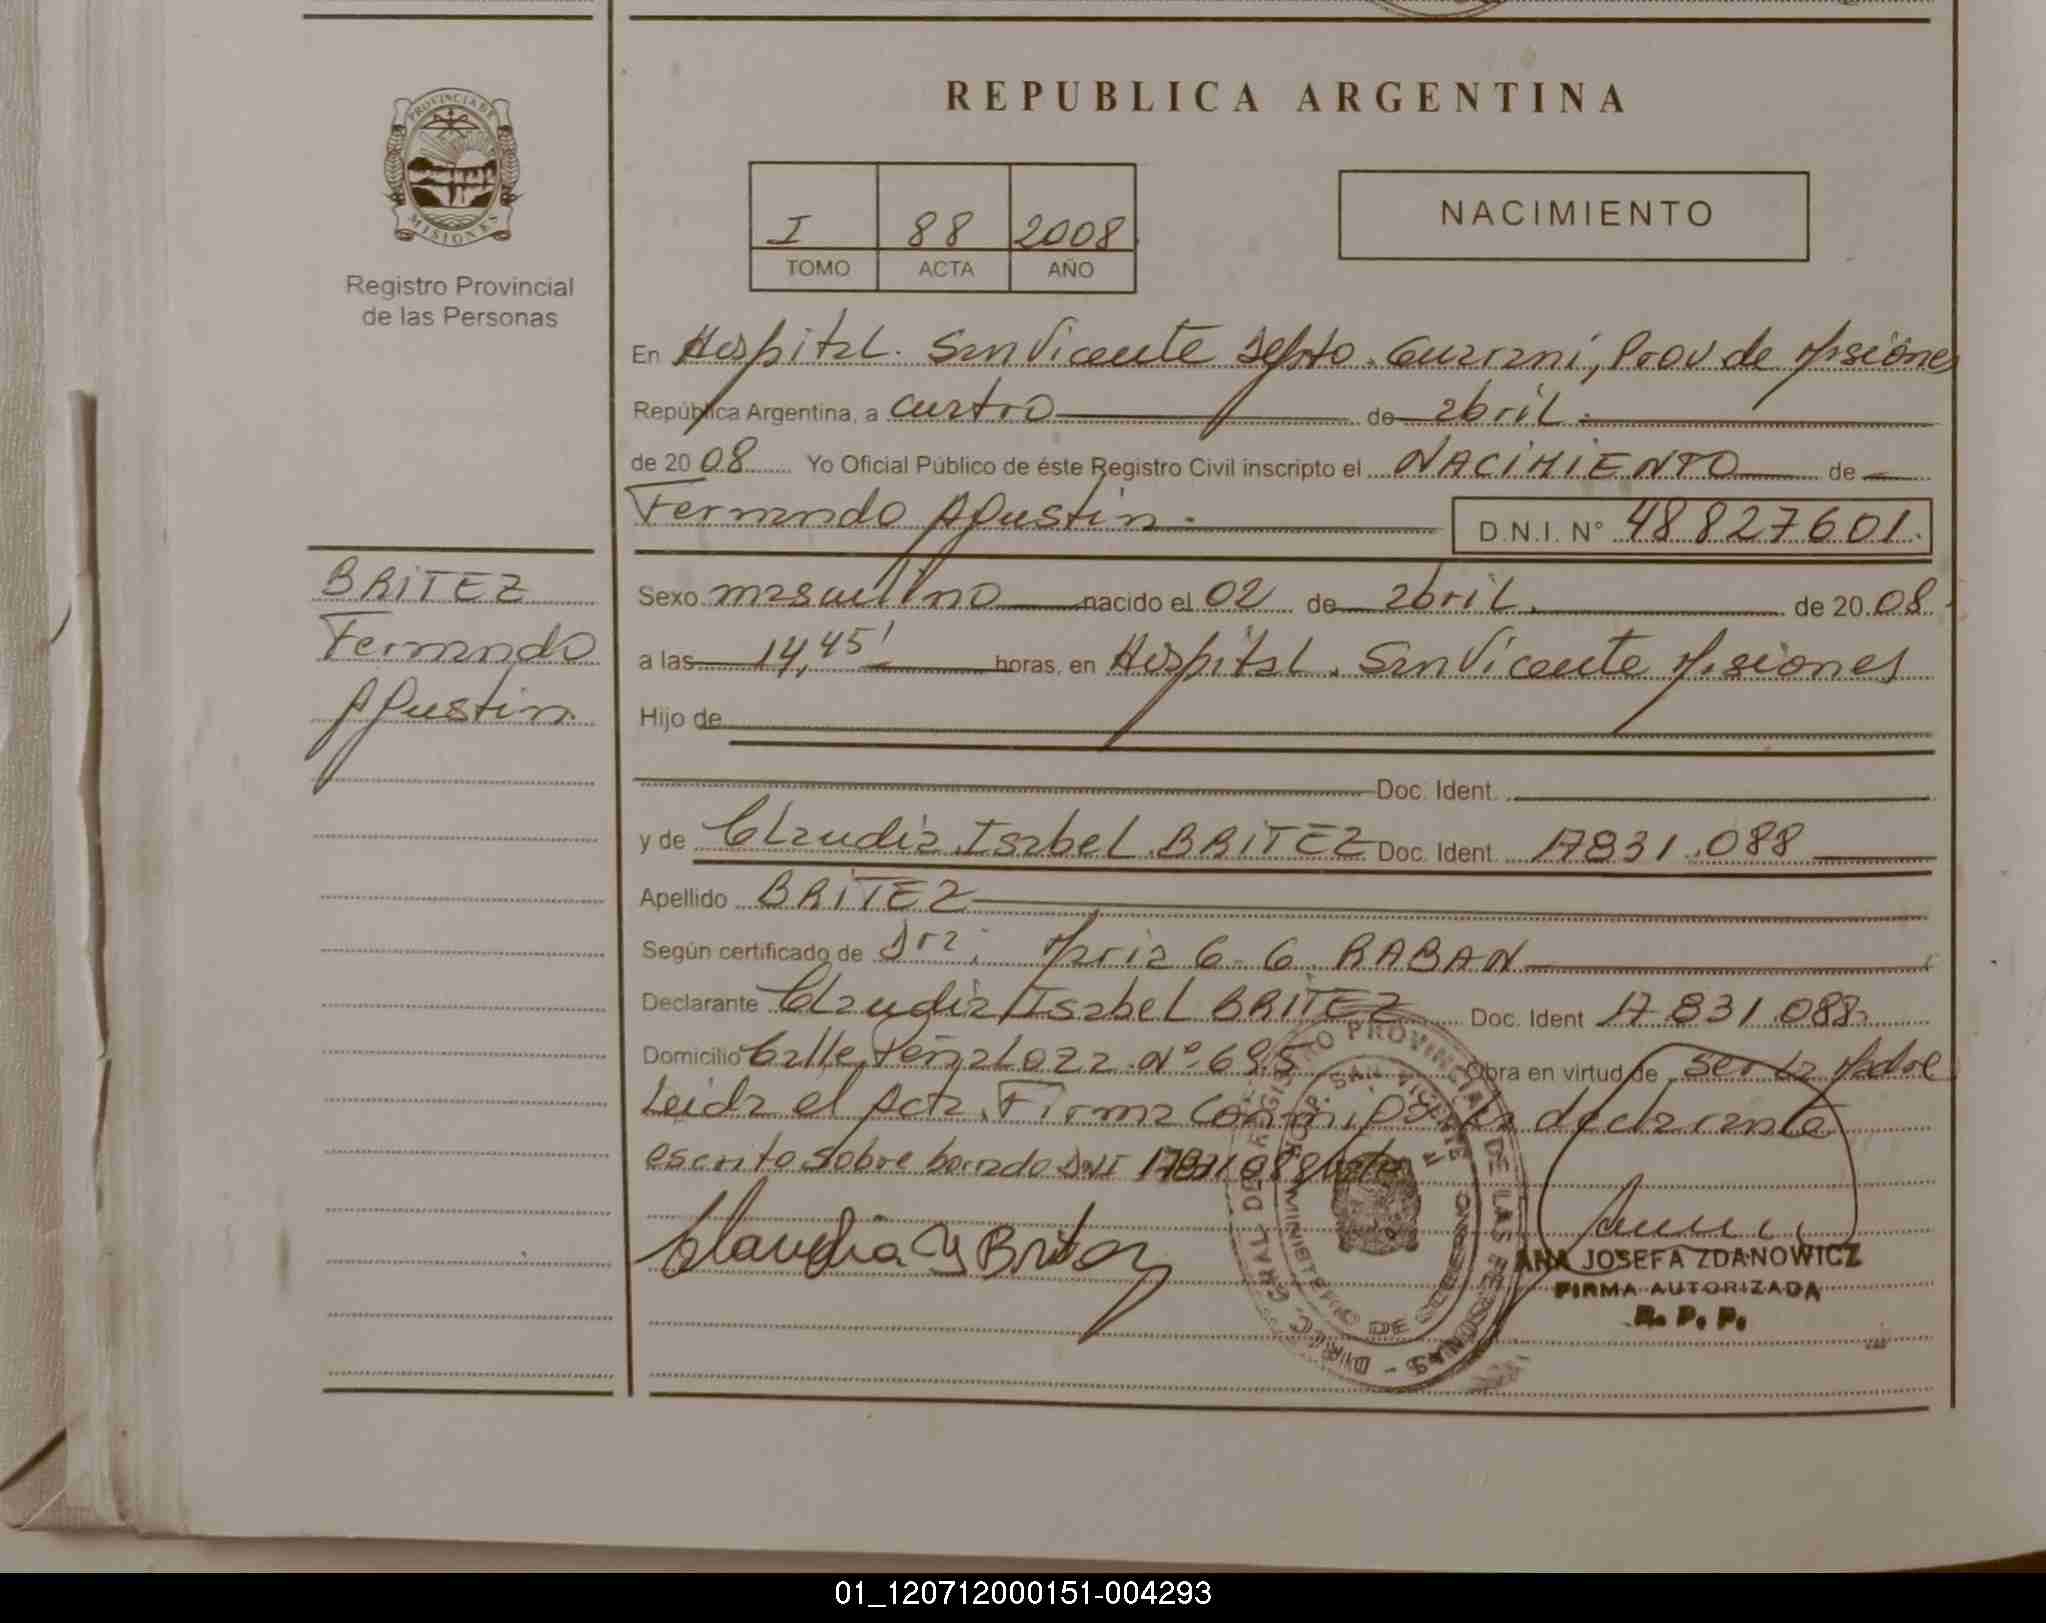 REPUBLICA ARGENTINA
PROVINCIA DE
MISIONES
Registro Provincial
de las Personas
I 88 2008
TOMO ACTA AÑO
NACIMIENTO
En Hospital. San Vicente Depto. Guarani, Prov de Misiones
República Argentina, a cuatro de abril.
de 20 08 Yo Oficial Público de éste Registro Civil inscripto el NACIMIENTO de
Fernando Agustin. D.N.I. N° 48827601.
BRITEZ
Fernando
Agustin.
Sexo masculino nacido el 02 de abril. de 20 08.
a las 14,45' horas, en Hospital. San Vicente Misiones
Hijo de
Doc. Ident.
y de Claudia Isabel BRITEZ Doc. Ident. 17831.088
Apellido BRITEZ
Según certificado de Dra: Maria G. G. RABAN
Declarante Claudia Isabel BRITEZ Doc. Ident 17831.088
Domicilio Calle Peñaloza N° 695 Obra en virtud de ser la Madre
Leida el Acta. Firma conmigo la declarante
escrito sobre borrado DNI 17831088
Claudia Y Britez
DIREC. GRAL DE REGISTRO PROVINCIAL DE LAS PERSONAS -
MINISTERIO DE GOBIERNO
SAN VICENTE
ANA JOSEFA ZDANOWICZ
FIRMA AUTORIZADA
R. P. P.
01_120712000151-004293